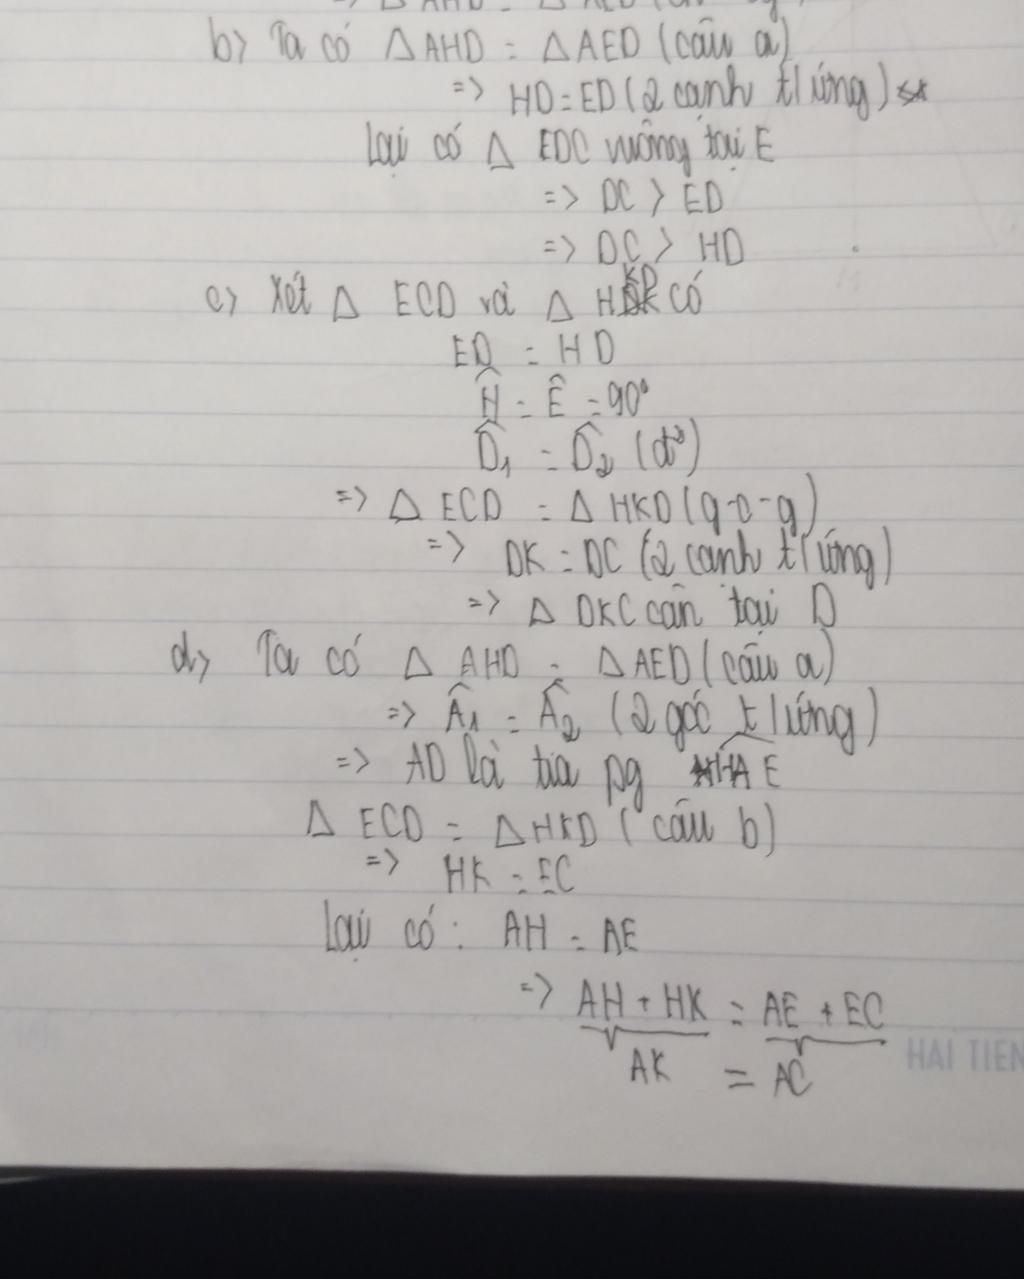 b) Ta có Δ AHD = Δ AED (câu a)
=> HD = ED (2 cạnh t/ứng)
Lại có Δ EDC vuông tại E
=> DC > ED
=> DC > HD
c) Xét Δ ECD và Δ HKD có
ED = HD
Ĥ = Ê = 90°
D̂₁ = D̂₂ (đ²)
=> Δ ECD = Δ HKD (g-c-g)
=> DK = DC (2 cạnh t/ứng)
=> Δ DKC cân tại D
d) Ta có Δ AHD = Δ AED (câu a)
=> Â₁ = Â₂ (2 góc t/ứng)
=> AD là tia pg HAE
Δ ECD = Δ HKD (câu b)
=> HK = EC
Lại có: AH = AE
=> AH + HK = AE + EC
AK = AC
HAI TIEN